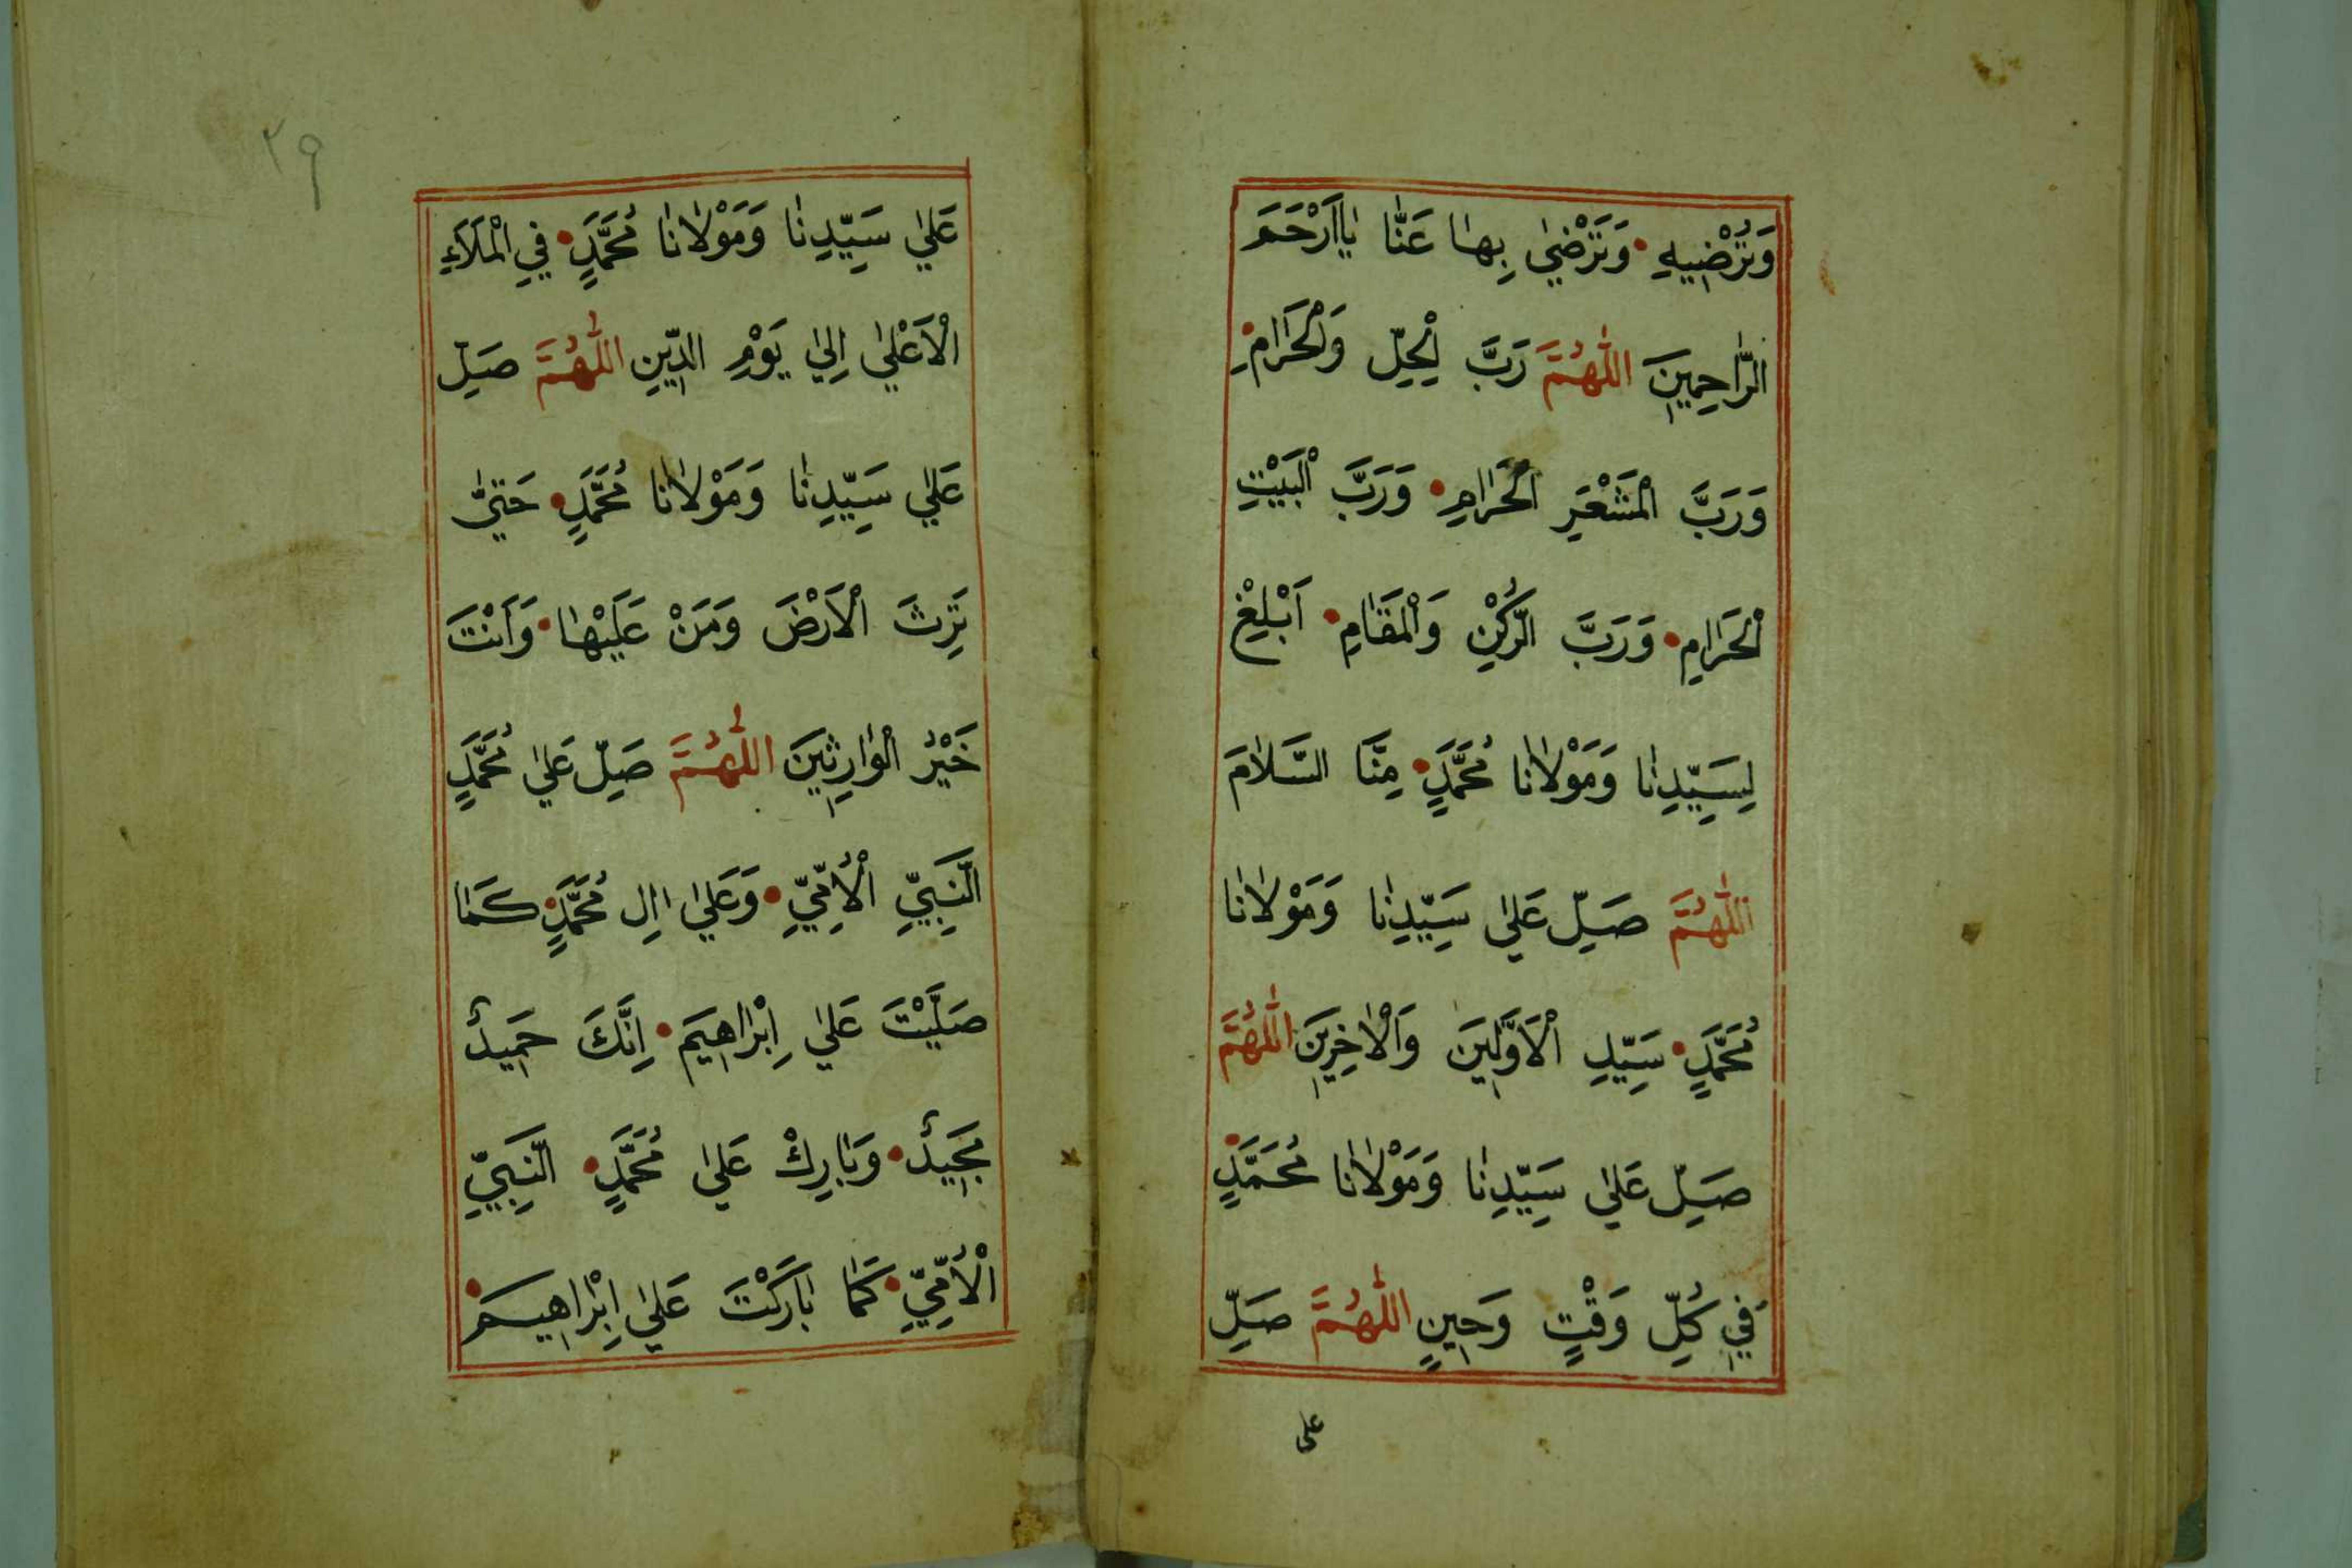 وَتُرْضِيهِ • وَتَرْضٰى بِهٰا عَنّٰا يٰا اَرْحَمَ
الرّٰاحِمِينَ اللّٰهُمَّ رَبَّ الْحِلِّ وَالْحَرٰامِ •
وَرَبَّ الْمَشْعَرِ الْحَرٰامِ • وَرَبَّ الْبَيْتِ
الْحَرٰامِ • وَرَبَّ الرُّكْنِ وَالْمَقٰامِ • اَبْلِغْ
لِسَيِّدِنٰا وَمَوْلٰانٰا مُحَمَّدٍ • مِنَّا السَّلٰامَ
اللّٰهُمَّ صَلِّ عَلٰي سَيِّدِنٰا وَمَوْلٰانٰا
مُحَمَّدٍ • سَيِّدِ الْاَوَّلِينَ وَالْاٰخِرِينَ اللّٰهُمَّ
صَلِّ عَلٰي سَيِّدِنٰا وَمَوْلٰانٰا مُحَمَّدٍ •
فِي كُلِّ وَقْتٍ وَحِينٍ اللّٰهُمَّ صَلِّ
على
٢٩
عَلٰي سَيِّدِنٰا وَمَوْلٰانٰا مُحَمَّدٍ • فِي الْمَلَاَءِ
الْاَعْلٰي اِلٰي يَوْمِ الدِّينِ اللّٰهُمَّ صَلِّ
عَلٰي سَيِّدِنٰا وَمَوْلٰانٰا مُحَمَّدٍ • حَتّٰي
تَرِثَ الْاَرْضَ وَمَنْ عَلَيْهٰا • وَاَنْتَ
خَيْرُ الْوٰارِثِينَ اللّٰهُمَّ صَلِّ عَلٰي مُحَمَّدٍ
النَّبِيِّ الْاُمِّيِّ • وَعَلٰي اٰلِ مُحَمَّدٍ • كَمٰا
صَلَّيْتَ عَلٰي اِبْرٰاهِيمَ • اِنَّكَ حَمِيدٌ
مَجِيدٌ • وَبٰارِكْ عَلٰي مُحَمَّدٍ • النَّبِيِّ
الْاُمِّيِّ • كَمٰا بٰارَكْتَ عَلٰي اِبْرٰاهِيمَ •